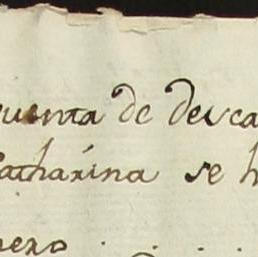 uenta de desca
atharina se h
nero